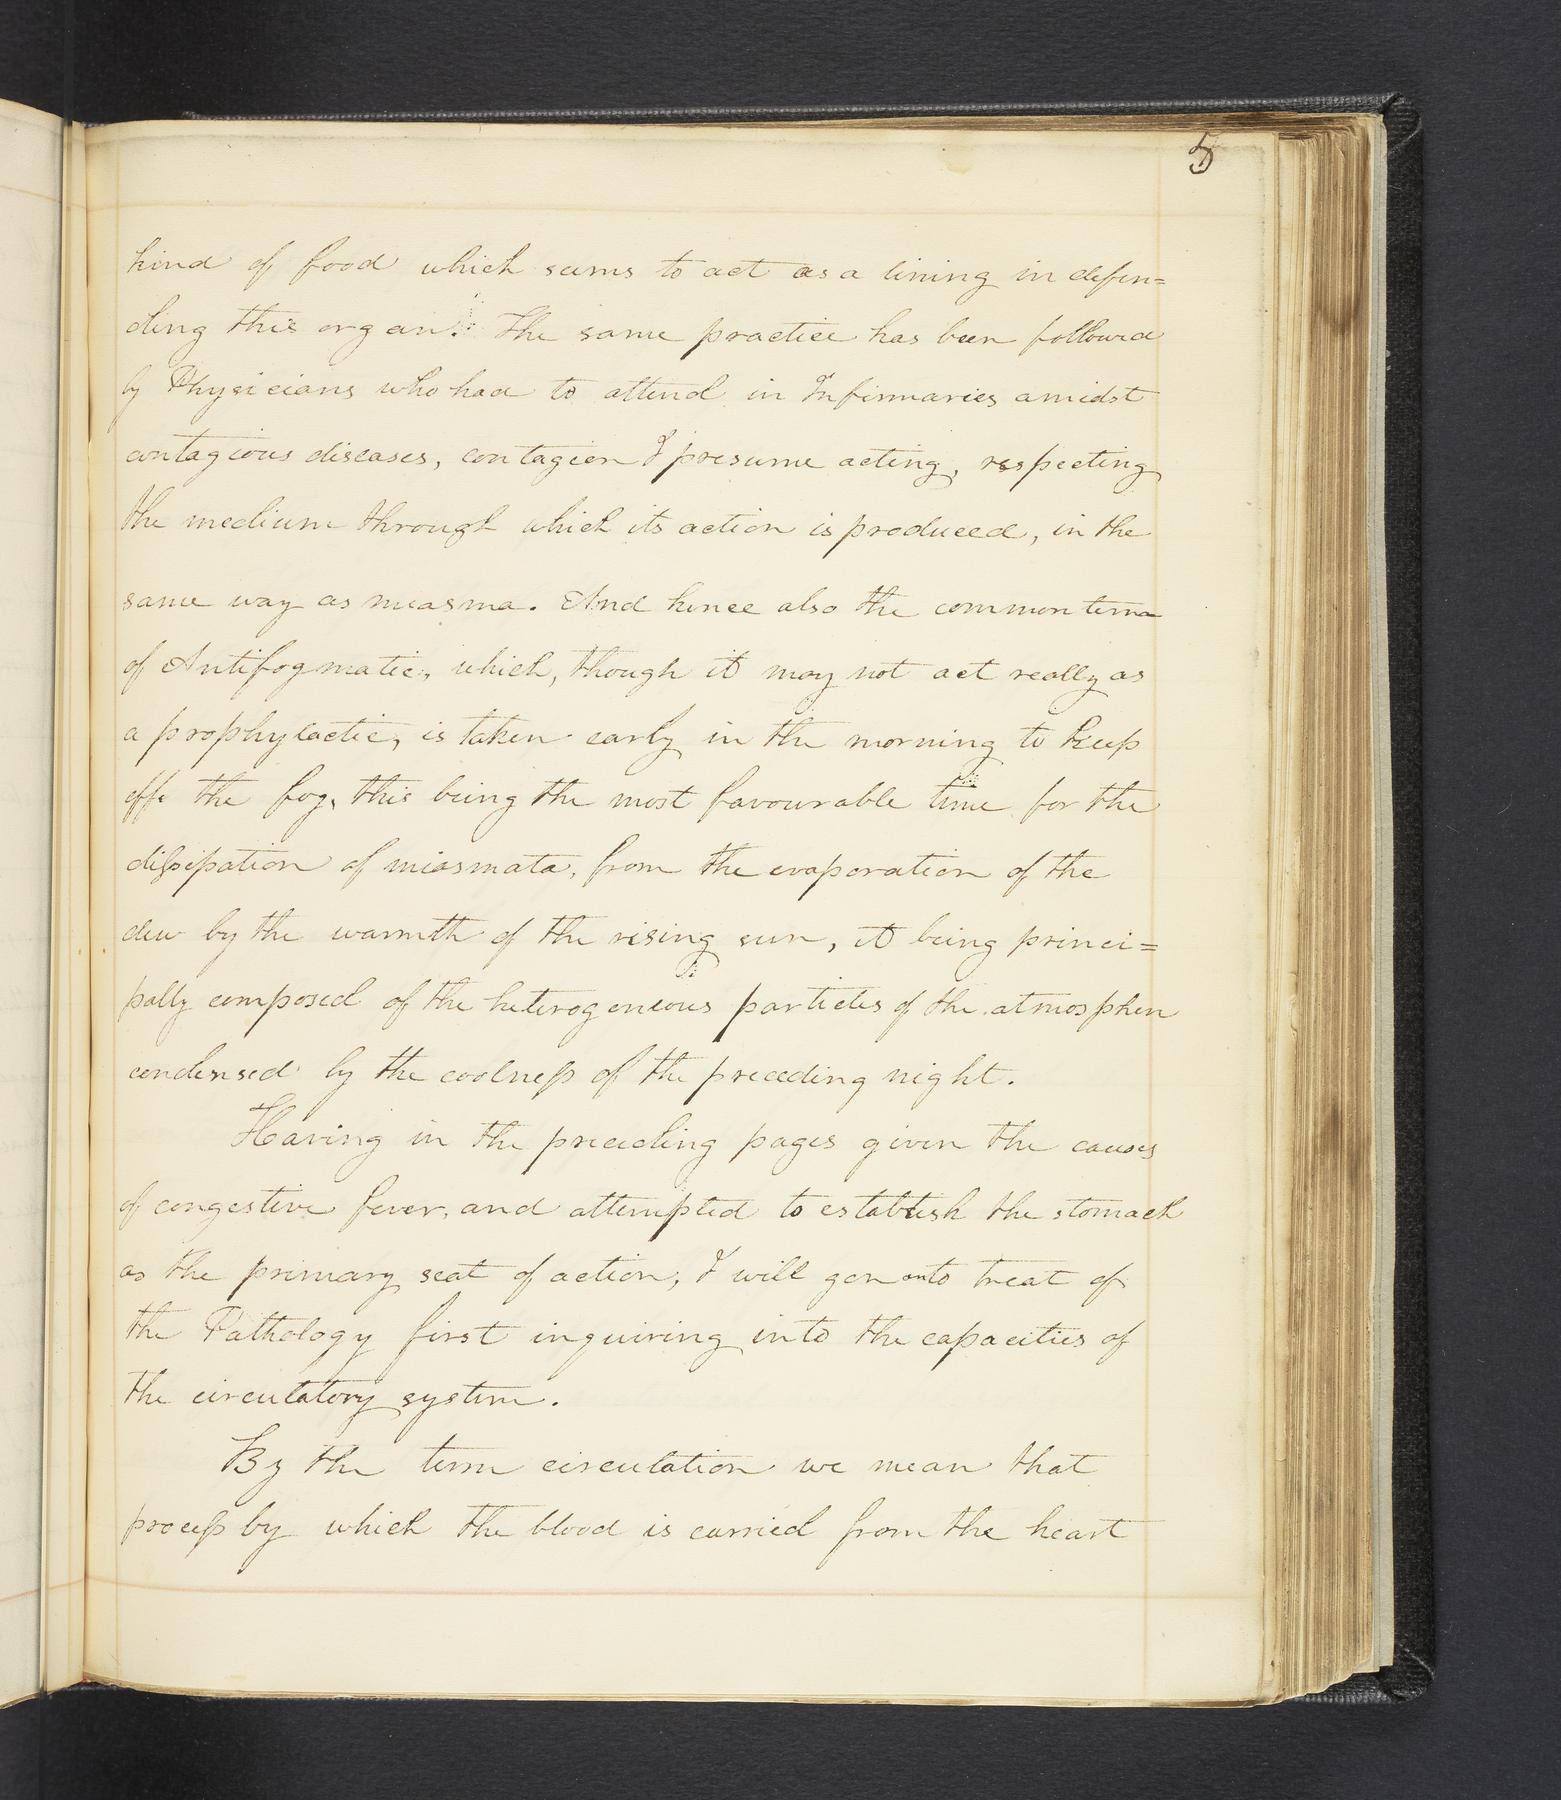 5
kind of food which seems to act as a lining in defen=
ding this organ. The same practice has been followed
by Physicians who had to attend in Infirmaries amidst
contagious diseases, contagion I presume acting, respecting
the medium through which its action is produced, in the
same way as miasma. And hence also the common term
of Antifogmatic, which, though it may not act really as
a prophylactic, is taken early in the morning to keep
off the fog, this being the most favourable time for the
dissipation of miasmata, from the evaporation of the
dew by the warmth of the rising sun, it being princi=
pally composed of the heterogeneous particles of the atmosphere
condensed by the coolness of the preceding night.
Having in the preceding pages given the causes
of congestive fever, and attempted to establish the stomach
as the primary seat of action, I will go on to treat of
the Pathology first inquiring into the capacities of
the circulatory system.
By the term circulation we mean that
process by which the blood is carried from the heart